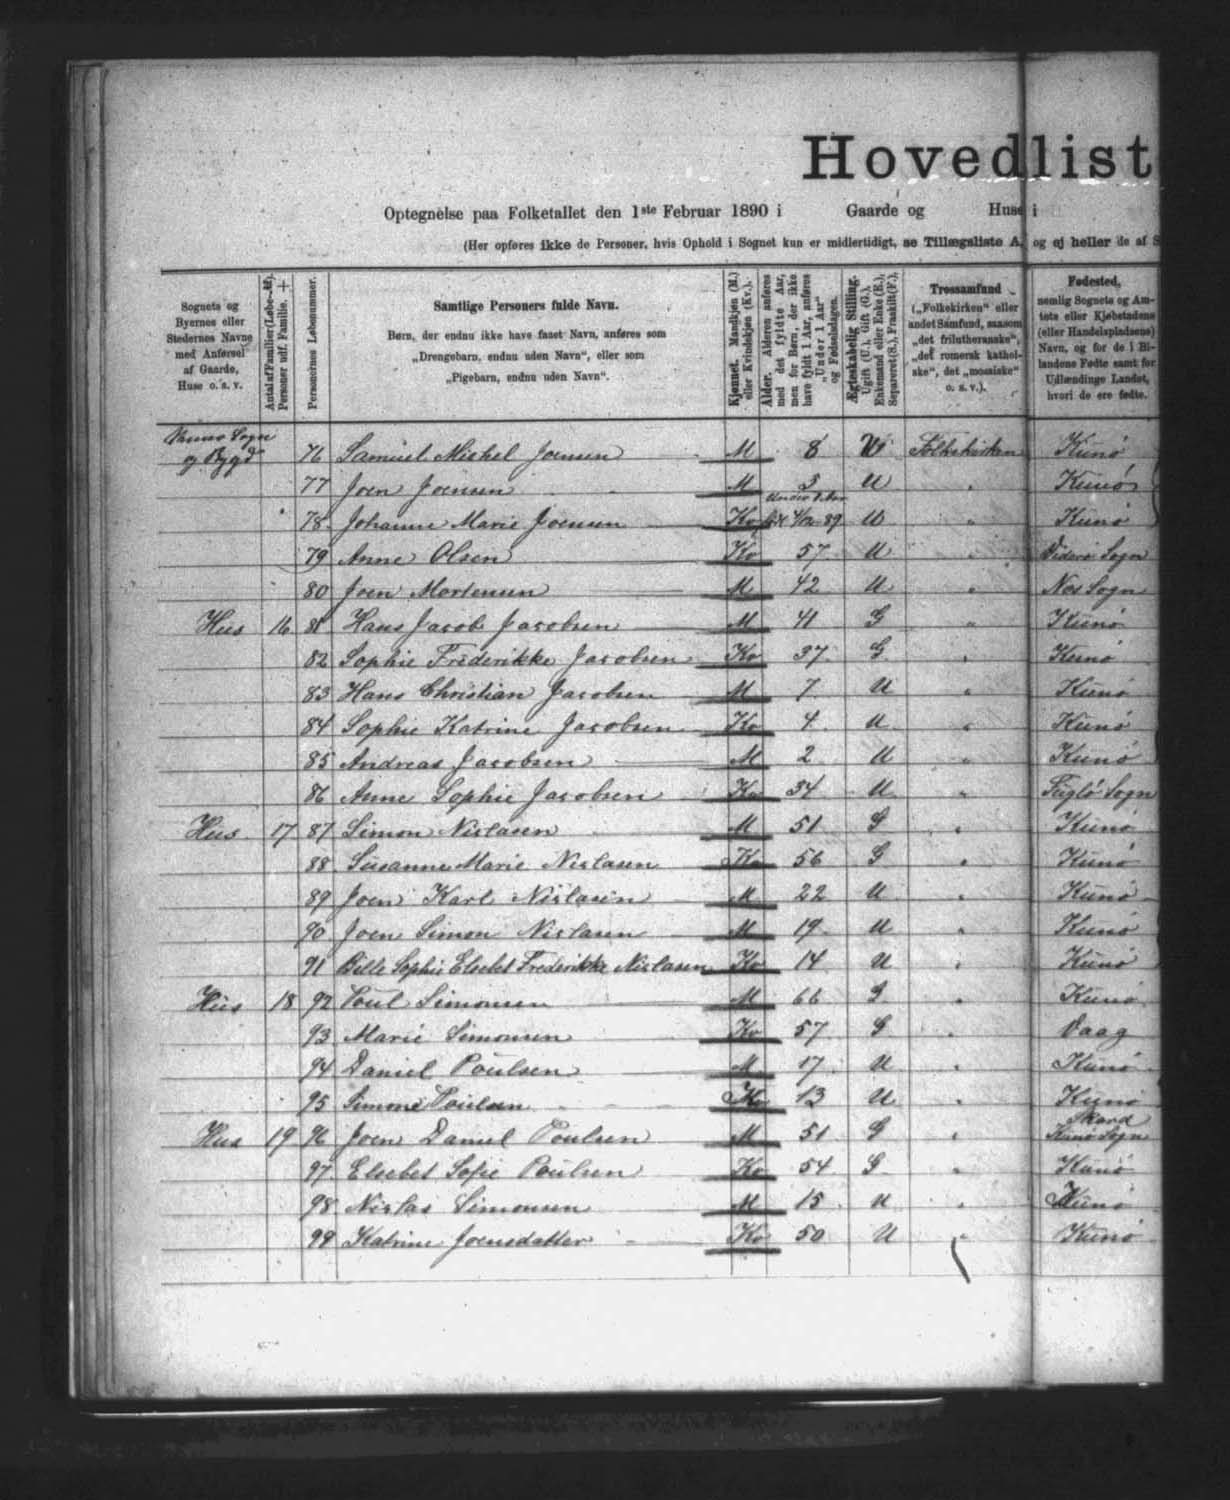 Hovedlist
Optegnelse paa Folketallet den 1ste Februar 1890 i Gaarde og Huse i
(Her opføres ikke de Personer, hvis Ophold i Sognet kun er midlertidigt, se Tillægsliste A, og ej heller de af S
Sognets og Byernes eller Stedernes Navne med Anførsel af Gaarde, Huse o. s. v.
Antal af Familier (Løbe-№). Personer udf. Familie.
Personernes Løbenummer.
Samtlige Personers fulde Navn.
Børn, der endnu ikke have faaet Navn, anføres som
„Drengebarn, endnu uden Navn“, eller som
„Pigebarn, endnu uden Navn“.
Kjønnet. Mandkjøn (M.) eller Kvindekjøn (Kv.).
Alder. Alderen anføres med det fyldte Aar, men for Børn, der ikke have fyldt 1 Aar, anføres „Under 1 Aar“ og Fødselsdagen.
Ægteskabelig Stilling. Ugift (U.), Gift (G.), Enkemand eller Enke (E.), Separeret (S.), Fraskilt (F.).
Trossamfund („Folkekirken“ eller andet Samfund, saasom „det frilutheranske“, „det romersk katholske“, det „mosaiske“ o. s. v.).
Fødested, nemlig Sognets og Amtets eller Kjøbstadens (eller Handelspladsens) Navn, og for de i Bilandene Fødte samt for Udlændinge Landet, hvori de ere fødte.
Kunø Sogn
og Bygd 76 Samuel Mishel Joensen M 8 U Folkekirken Kunø
77 Joen Joensen M 3 U " Kunø
Under 1 Aar
78 Johanne Marie Joensen Kv 4/12 89 U " Kunø
79 Anne Olsen Kv 57 U " Viderø Sogn
80 Joen Mortensen M 42 U " Nes Sogn
Hus 16 81 Hans Jacob Jacobsen M 41 G " Kunø
82 Sophie Frederikke Jacobsen Kv 37 G " Kunø
83 Hans Christian Jacobsen M 7 U " Kunø
84 Sophie Katrine Jacobsen Kv 4 U " Kunø
85 Andreas Jacobsen M 2 U " Kunø
86 Anne Sophie Jacobsen Kv 34 U " Fuglø Sogn
Hus 17 87 Simon Niclasen M 51 G " Kunø
88 Susanne Marie Niclasen Kv 56 G " Kunø
89 Joen Karl Niclasen M 22 U " Kunø
90 Joen Simon Niclasen M 19 U " Kunø
91 Bille Sophie Elsebet Frederikke Niclasen Kv 14 U " Kunø
Hus 18 92 Poul Simonsen M 66 G " Kunø
93 Marie Simonsen Kv 57 G " Vaag
94 Daniel Poulsen M 17 U " Kunø
95 Simone Poulsen Kv 13 U " Kunø
Skard
Hus 19 96 Joen Daniel Poulsen M 51 G " Kunø Sogn
97 Elsebet Sofie Poulsen Kv 54 G " Kunø
98 Niclas Simonsen M 15 U " Kunø
99 Katrine Joensdatter Kv 50 U " Kunø